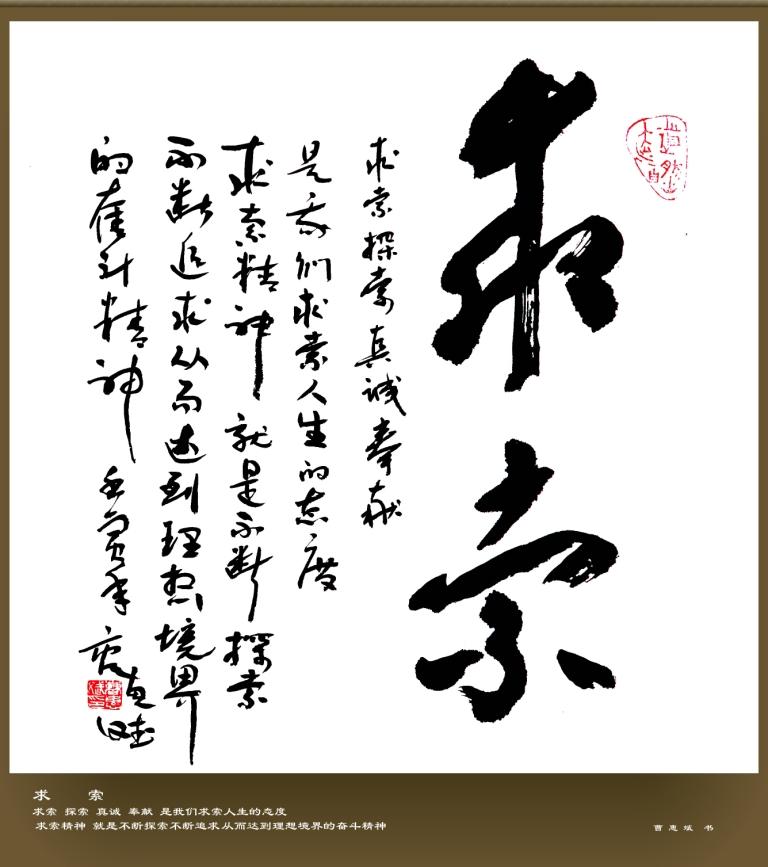 求索
求索探索真诚奉献
是我们求索人生的态度
求索精神就是不断探索
不断追求从而达到理想境界
的奋斗精神 壬寅年
求 索
求索 探索 真诚 奉献 是我们求索人生的态度
求索精神 就是不断探索不断追求从而达到理想境界的奋斗精神
曹惠斌 书